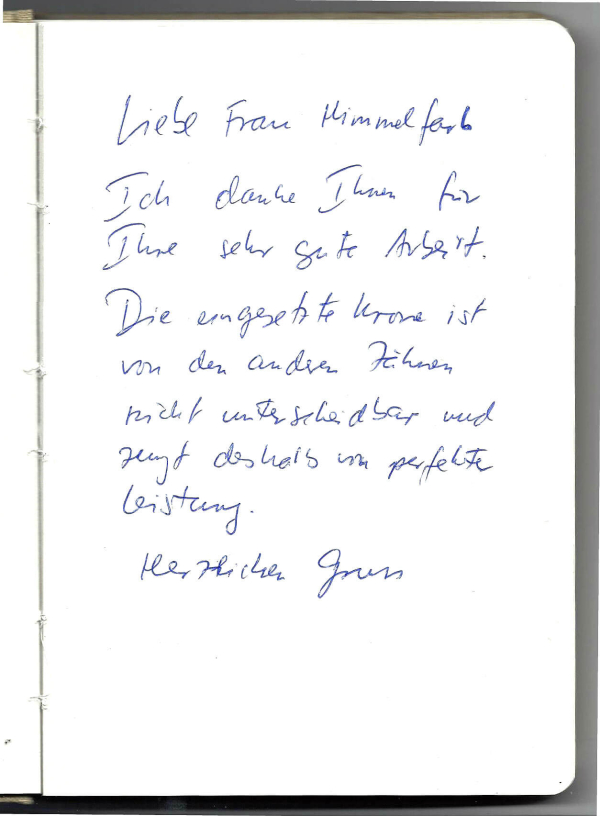 Liebe Frau Himmelfarb
Ich danke Ihnen für
Ihre sehr gute Arbeit.
Die eingesetzte Krone ist
von den anderen Zähnen
nicht unterscheidbar und
zeugt deshalb von perfekter
Leistung.
Herzlichen Gruss